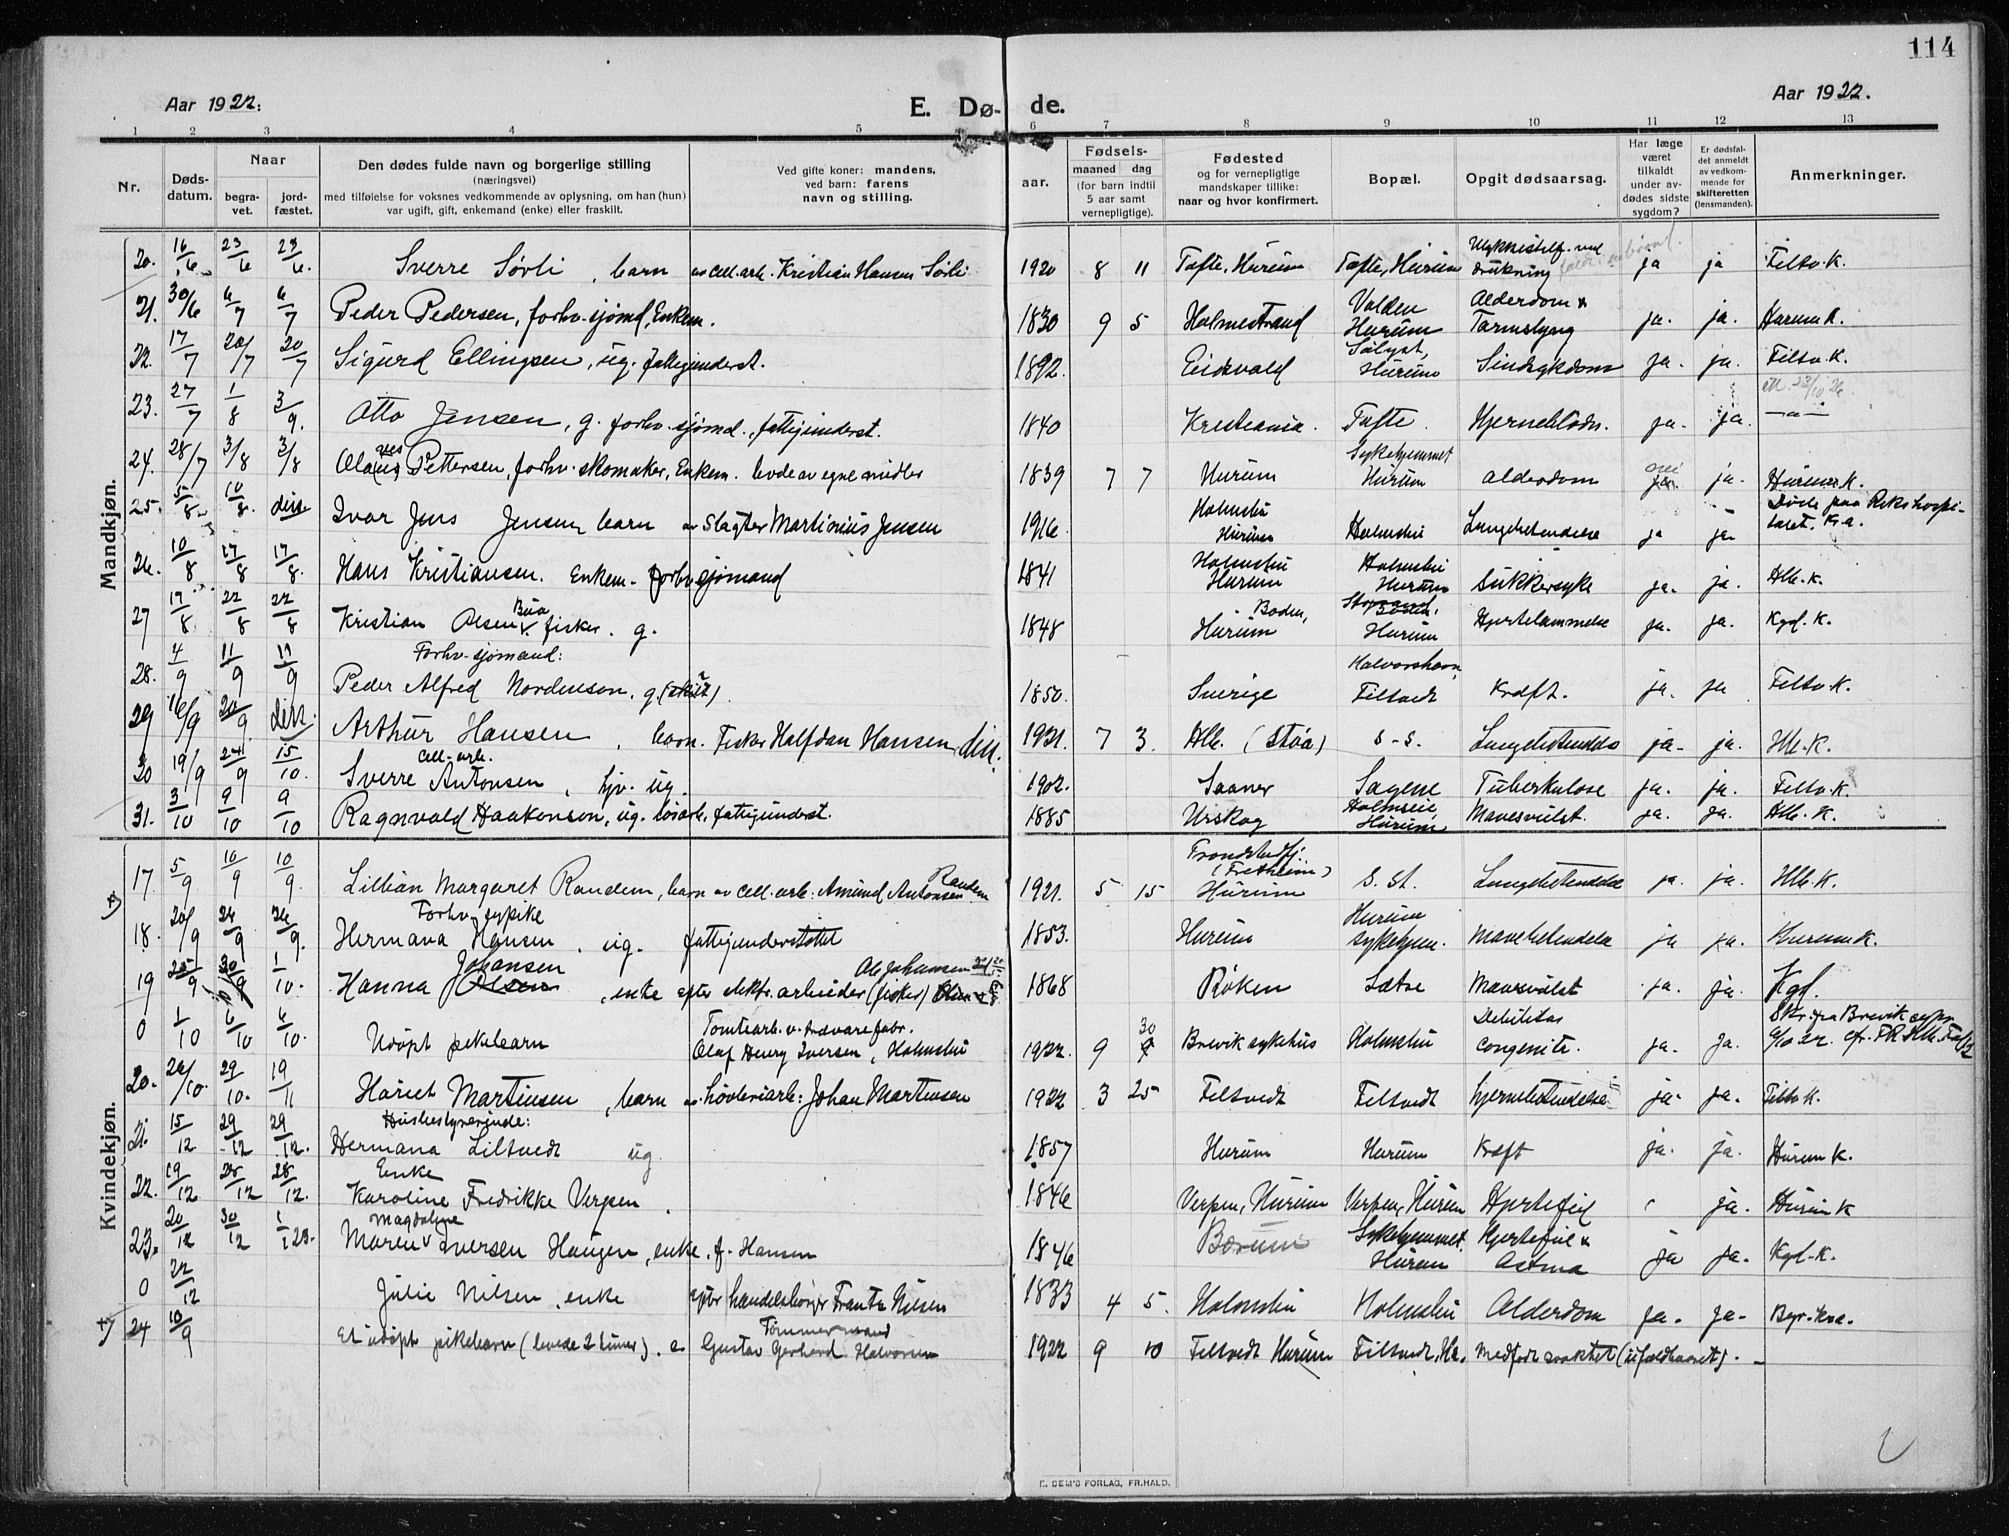 114
Aar 1922.
E. Dø- de.
Aar 1922.
1 2 3 4 5 6 7 8 9 10 11 12 13
Nr. Døds-datum. Naar begra-vet. jord-fæstet. Den dødes fulde navn og borgerlige stilling (næringsvei) med tilføielse for voksnes vedkommende av oplysning, om han (hun) var ugift, gift, enkemand (enke) eller fraskilt. Ved gifte koner: mandens, ved barn: farens navn og stilling. Fødsels- aar. maaned dag (for barn indtil 5 aar samt vernepligtige). Fødested og for vernepligtige mandskaper tillike: naar og hvor konfirmert. Bopæl. Opgit dødsaarsag. Har læge været tilkaldt under av-dødes sidste sygdom? Er dødsfal-det anmeldt av vedkom-mende for skifteretten (lensmanden). Anmerkninger.
Mandkjøn.
20. 16/6 23/6 23/6. Sverre Sørli, barn av cell.arb. Kristian Hansen Sørli 1920 8 11 Tofte, Hurum Tofte, Hurum Ulykkestilf. ved drukning ja ja Filtv. K.
21. 30/6 6/7 6/7 Peder Pedersen, forhv. sjømd, Enkem. 1830 9 5 Holmestrand Valden Hurum Alderdom & Tarmslyng ja. ja. Hurum K.
22. 17/7 20/7 20/7 Sigurd Ellingsen, ug. fattigunderst. 1892. Eidsvold Sølyst, Hurum Sindsykdom ja. ja. Filtv. K.
23. 27/7 1/8 3/9. Otto Jensen, g. forhv. sjømd., fattigunderst. 1840 Kristiania. Tofte. Hjerneblødn. ja. ja. —"—
24. 28/7 3/8 3/8 Olaus Pettersen, forhv. skomaker, Enkem. levde av egne midler 1839 7 7 Hurum Sykehjemmet Hurum alderdom nei ja. Hurum K.
25. 5/8. 10/8. diss. Ivar Jens Jensen, barn av Slagter Martinius Jensen 1916 Holmsbu Hurum Holmsbu Lungebetændelse ja ja. Døde paa Rikshospi-talet. Kra.
26. 10/8 17/8 17/8. Hans Kristiansen. Enkem. forhv. sjømand 1841 Holmsbu Hurum Holmsbu Hurum Sukkersyke ja. ja. Hb. K.
27 17/8 22/8 22/8 Kristian Olsen Bua fisker. g. 1848 Boden, Hurum Boden, Hurum Hjertelammelse ja. ja. Kgd. K.
28. 4/9 11/9 17/9 Forhv. sjømand: Peder Alfred Nordenson. g (skilt) 1850. Sverige Halvorshavn, Filtvedt Kræft. ja. ja Filtv. K.
29 16/9 20/9. diss. Arthur Hansen, barn. Fisker Halfdan Hansen diss. 1921. 7 3. Hb. (Støa) s-s. Lungebetændelse ja. ja. Hb. K.
30 19/9 24/9 15/10. cell. arb. Sverre Antonsen, hjv. ug. 1902. Saaner Sagene Tuberkulose ja. ja. Filtv. K.
31. 3/10 9/10 9/10 Ragnvald Haakonson, ug. løsarb. fattigunderst. 1885 Urskog Holmsbu, Hurum Mavesvulst. ja. ja. Hb. K.
Kvindekjøn.
17. 5/9 10/9 10/9. Lillian Margaret Randem, barn av cell. arb: Amund Antonsen Randem 1921. 5 15 Trondstadfj. (Fretheim) Hurum s. st. Lungebetændelse ja. ja. Hb. K.
18. 20/9 24/9 24/9. Forhv. sypike Hermana Hansen. ug. fattigunderstøttet 1853. Hurum Hurum sykehjem. Mavebetændelse ja ja. Hurum K.
19 25/9 30/9 1/10. Hanna Johansen Olsen, enke efter elektr. arbeider (fisker) Ole Johansen 1868 Røken Sætre Mavesvulst ja. ja. Kgd.
0 1/10 6/10 6/10. Udøpt pikebarn Tomtearb. v. trævarefabr. Olaf Henry Iversen, Holmsbu 1922. 9 30 Brevik sykehus Holmsbu Debilitas congenita. ja. ja.
20. 26/10. 29/10. 19/11 Hariet Martinsen, barn av høvleriarb: Johan Martinsen 1922 3 25 Filtvedt Filtvedt hjernebetændelse ja. ja. Filtv. K.
21. 15/12 29/12 29/12. Husbestyrerinde: Hermana Liltvedt ug. 1857 Hurum Hurum Kræft ja. ja. Hurum K.
22. 19/12 28/12 28/12. Enke Karoline Fredrikke Verpen. 1846 Verpen, Hurum Verpen, Hurum Hjertefeil ja. Hurum K
23. 20/12 30/12 1/1 23. Maren Magdalene Iversen Haugen, enke. f. Hansen 1846 Bærum Sykehjemmet, Hurum Hjertefeil & Astma ja ja. Kgd. K.
0 22/12 Julie Nilsen, enke efter handelsborger Frantz Nilsen 1833 4 5. Holmsbu Holmsbu Alderdom ja. ja. Begr. Kra.
24 10/9 Et udøpt pikebarn (levede 2 timer). av Tømmermand Gustav Gerhard Halvorsen 1922 9 10 Filtvedt Hurum Filtvedt, Hr. Medfødt svakhet (ufuldbaaret).
E. SEM'S FORLAG, FR.HALD.